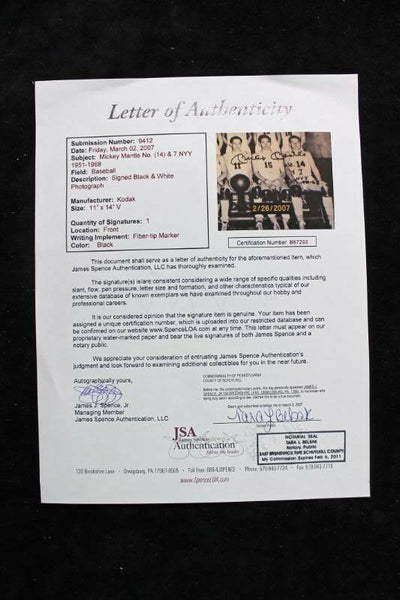 Letter of Authenticity
Submission Number: 9412
Date: Friday, March 02, 2007
Subject: Mickey Mantle No. (14) & 7 NYY
1951-1968
Field: Baseball
Description: Signed Black & White
Photograph
Manufacturer: Kodak
Size: 11" x 14" V
Quantity of Signatures: 1
Location: Front
Writing Implement: Fiber-tip Marker
Color: Black
11 15 14
2/26/2007
Certification Number: B67293
This document shall serve as a letter of authenticity for the aforementioned item, which
James Spence Authentication, LLC has thoroughly examined.
The signature(s) is/are consistent considering a wide range of specific qualities including
slant, flow, pen pressure, letter size and formation, and other characteristics typical of our
extensive database of known exemplars we have examined throughout our hobby and
professional careers.
It is our considered opinion that the signature item is genuine. Your item has been
assigned a unique certification number, which is uploaded into our restricted database and can
be confirmed on our website www.SpenceLOA.com at any time. This letter must appear on our
proprietary water-marked paper and bear the live signatures of both James Spence and a
notary public.
We appreciate your consideration of entrusting James Spence Authentication's
judgment and look forward to examining additional collectibles for you in the near future.
Autographically yours,
James J. Spence, Jr.
Managing Member
James Spence Authentication, LLC
COMMONWEALTH OF PENNSYLVANIA
COUNTY OF SCHUYLKILL
Tara L Belsak
NOTARIAL SEAL
TARA L BELSAK
Notary Public
EAST BRUNSWICK TWP, SCHUYLKILL COUNTY
My Commission Expires Feb 6, 2011
JSA
James Spence
Authentication
130 Brookshire Lane • Orwigsburg, PA 17961-9505 • Toll Free 888-4JSPENCE
www.SpenceLOA.com